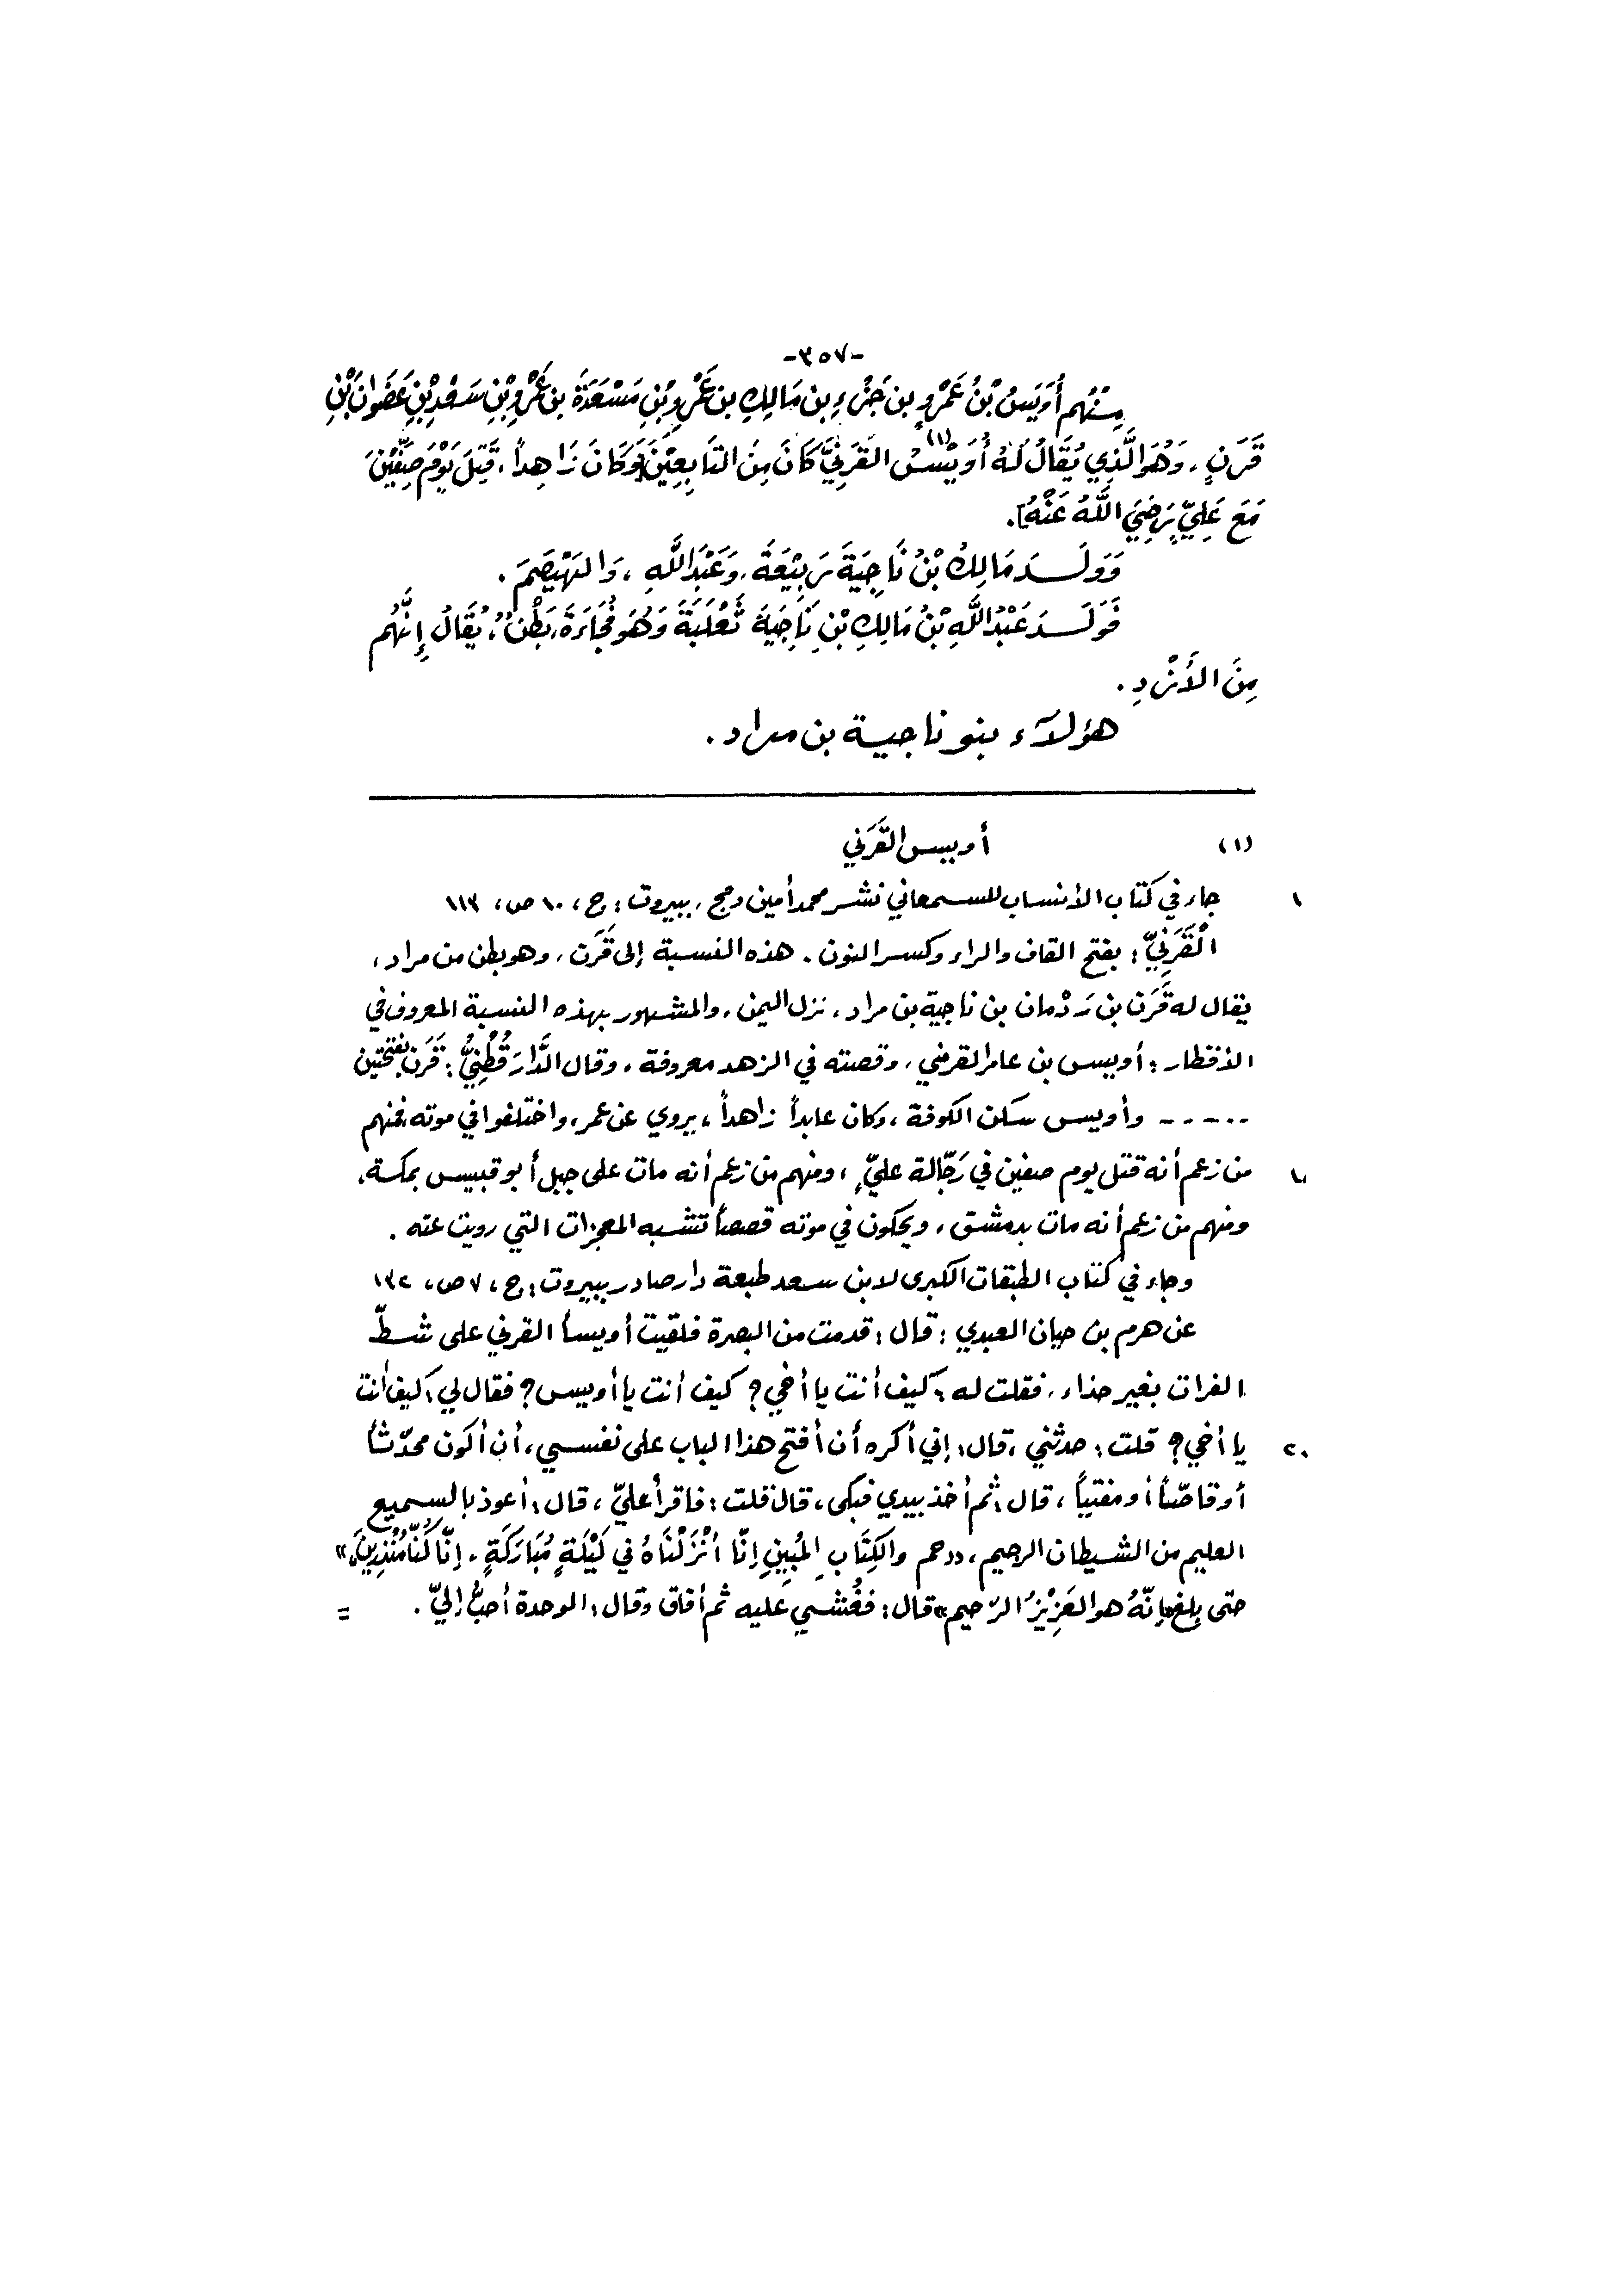 -٣٥٧-
مِنْهُم أُوَيسُ بْنُ عَمْرِو بن جَزْءِ بن مَالِكِ بن عَمْرِو بْنِ مَسْعَدَةَ بن عَمْرِو بْنِ سَعْدِ بْنِ عَصَوانَ بْنِ
قَرَنٍ، وَهُوَ الَّذِي يُقَالُ لَهُ أُوَيْسُ القَرَنِيُّ (١) كَانَ مِنَ التَّابِعِيْنَ [وَكَانَ زَاهِداً، قُتِلَ يَوْمَ صِفِّيْنَ
مَعَ عَلِيٍّ رَضِيَ اللَّهُ عَنْهُ].
وَوَلَدَ مَالِكُ بْنُ نَاجِيَةَ رَبِيْعَةَ، وَعَبْدَاللَّهِ، وَالهَيْصَمَ.
فَوَلَدَ عَبْدُاللَّهِ بْنُ مَالِكِ بْنِ نَاجِيَةَ ثَعْلَبَةَ وَهُوَ مُجَاءَةُ، بَطْنٌ، يُقَالُ إِنَّهُم
مِنَ الأَزْدِ.
هؤلآء بنو ناجية بن مراد.
(١) أويس القَرَني
١ جاء في كتاب الأنساب للسمعاني نشر محمد أمين دمج، ببيروت: ج، ١٠ ص، ١١٣
الْقَرَنِيُّ: بفتح القاف والراء وكسر النون. هذه النسبة إلى قَرَن، وهو بطن من مراد،
يقال له قَرَن بن رَدْمان بن ناجية بن مراد، نزل اليمن، والمشهور بهذه النسبة المعروف في
الأقطار: أويس بن عامر القرني، وقصته في الزهد معروفة، وقال الدَّارَقُطْنِيُّ: قَرَن بفتحتين
----- وأويس سكن الكوفة، وكان عابداً زاهداً، يروي عن عمر، واختلفوا في موته، فمنهم
١٠ من زعم أنه قتل يوم صفين في رَجّالة عليٍّ، ومنهم من زعم أنه مات على جبل أبو قبيس بمكة،
ومنهم من زعم أنه مات بدمشق، ويحكون في موته قصصاً تشبه المعجزات التي رويت عنه.
وجاء في كتاب الطبقات الكبرى لابن سعد طبعة دار صادر ببيروت: ج، ٧ ص، ١٣٢
عن هرم بن حيان العبدي: قال: قدمت من البصرة فلقيت أويسأ القرني على شطّ
الفرات بغير حذاء، فقلت له: كيف أنت يا أخي؟ كيف أنت يا أويس؟ فقال لي: كيف أنت
٢٠ يا أخي؟ قلت: حدثني، قال: إني أكره أن أفتح هذا الباب على نفسي، أن أكون محدّثاً
أو قاصّاً أو مفتياً، قال: ثم أخذ بيدي فبكى، قال: فلت: فاقرأ عليّ، قال: أعوذ بالسميع
العليم من الشيطان الرجيم، ((حم والكِتَابِ المُبِينِ إنّا أنْزَلْنَاهُ في لَيْلَةٍ مُبَارَكَةٍ، إنّا كُنّا مُنْذِرِينَ))
حتى بلغ ((إنّهُ هو العَزِيْزُ الرّحيم)) قال: فغُشي عليه ثم أفاق وقال: الوحدة أحبُّ إليّ. =